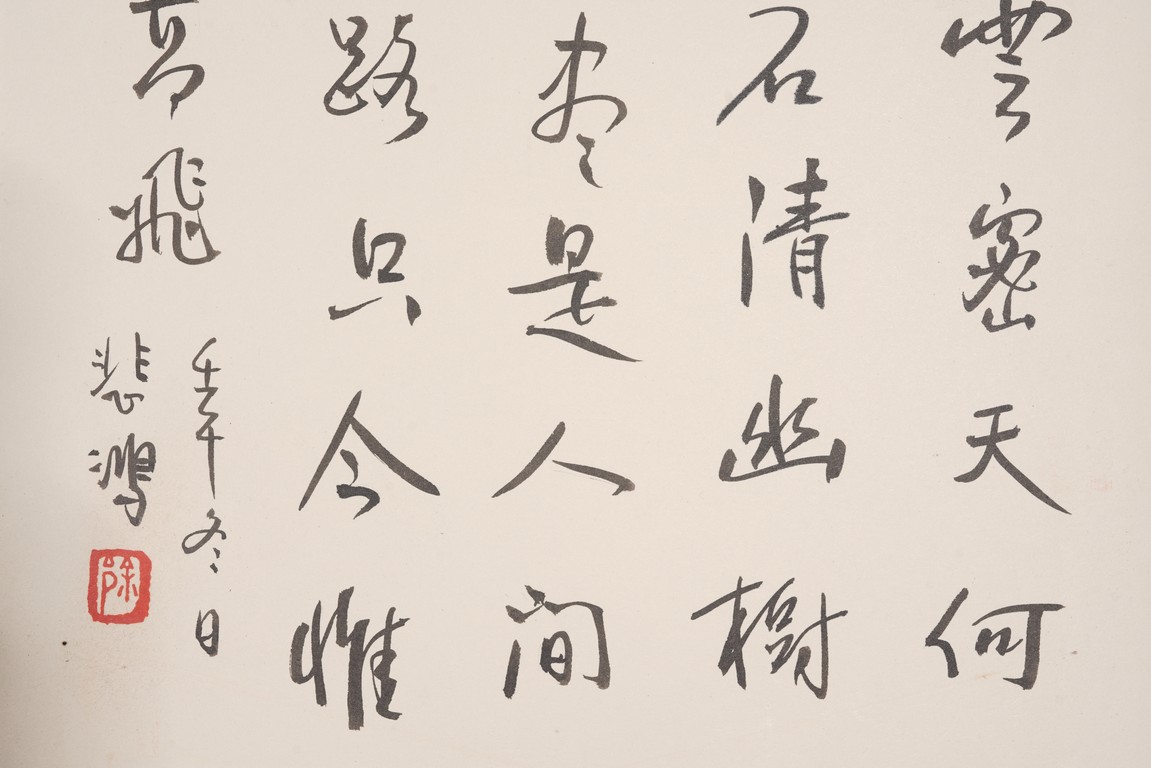 雲密天何
石清幽樹
盡是人间
路只今惟
高飛
壬午冬日
悲鴻
徐